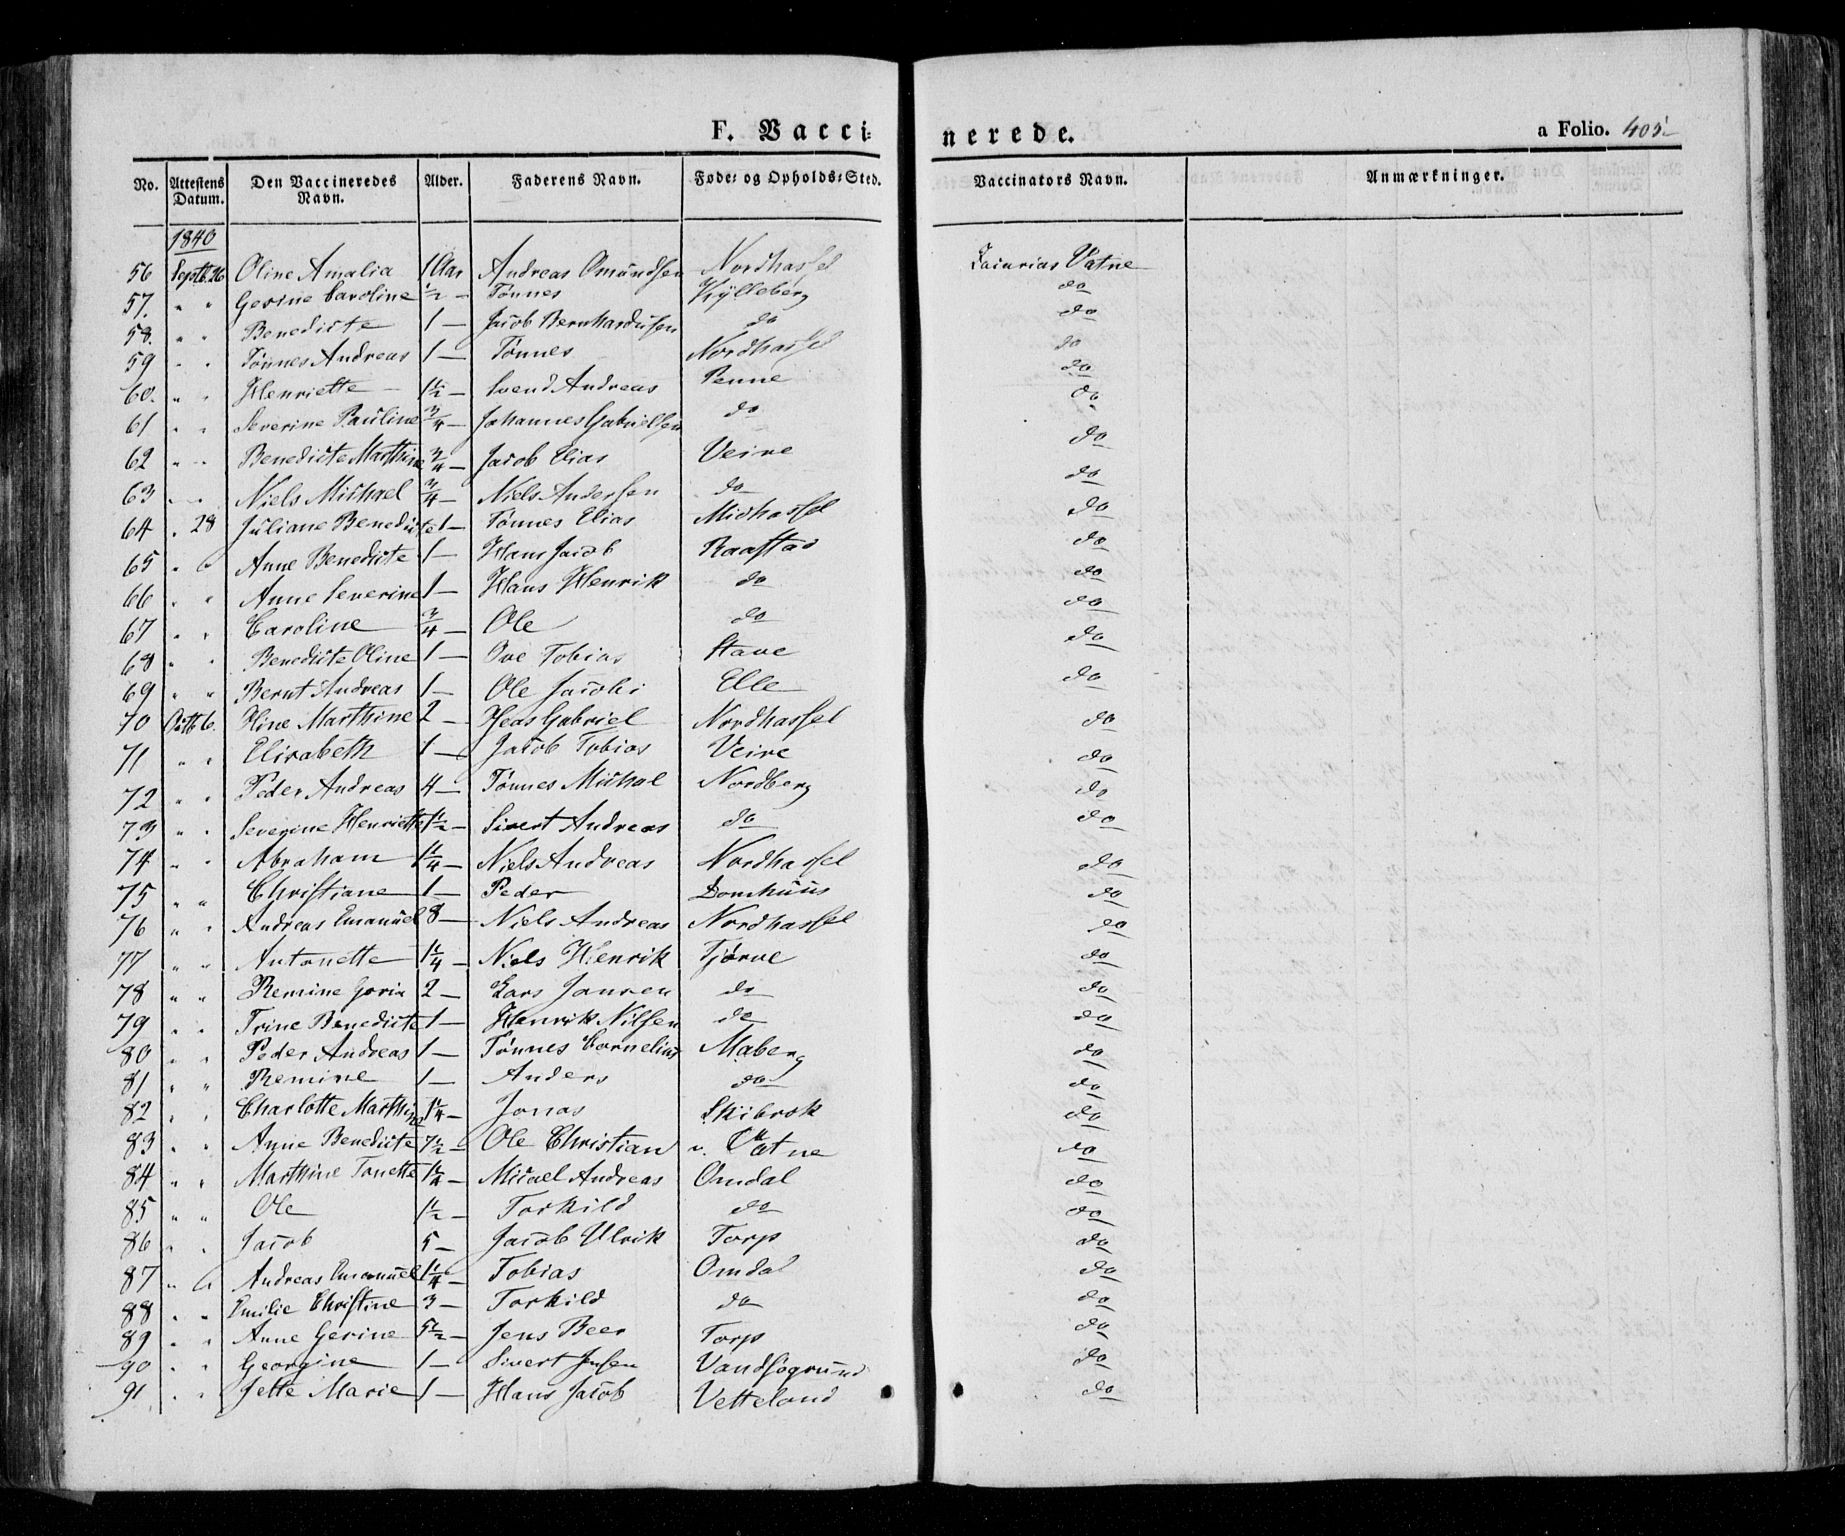 F. Vacci- nerede. a Folio. 405.
No. Attestens Datum. Den Vaccineredes Navn. Alder. Faderens Navn. Føde- og Opholds-Sted. Vaccinators Navn. Anmærkninger.
1840
56 Septb. 26 Oline Amalia 1 Aar Andreas Omundsen Nordhassel Zacarias Vatne
57. " " Gesine Caroline 1/2 - Tønnes Kylleberg do
58. " " Benedicte 1 - Jacob Bernhardusen do do
59 " " Tønnes Andreas 1 - Tønnes Nordhassel do
60. " " Henriette 1 1/2 - Svend Andreas Penne do
61 " " Severine Pauline 3/4 - Johannes Gabrielsen do do
62 " " Benedicte Marthine 3/4 - Jacob Elias Veive do
63 " " Niels Michael 3/4 - Niels Andersen do do
64 " 28 Juliane Benedicte 1 - Tønnes Elias Midhassel do
65 " " Anne Benedicte 1 - Hans Jacob Raastad do
66 " " Anne Severine 1 - Hans Henrik do do
67 " " Caroline 3/4 - Ole do do
68 " " Benedicte Oline 1 - Ove Tobias Stave do
69 " " Bernt Andreas 1 - Ole Jacobi Elle do
70 Octb 6. Oline Marthine 2 - Gabriel Nordhassel do
71 " " Elisabeth 1 - Jacob Tobias Veive do
72 " " Peder Andreas 4 - Tønnes Michal Nordberg do
73 " " Severine Henriette 1 1/2 - Sivert Andreas do do
74 " " Abraham 1 1/4 - Niels Andreas Nordhassel do
75 " " Christiane 1 - Peder Domhuus do
76 " " Andreas Emanuel 8 - Niels Andreas Nordhassel do
77 " " Antonette 1 1/4 - Niels Henrik Tjørve do
78 " " Remine Goria 2 - Lars Jansen do do
79 " " Trine Benedicte 1 - Henrik Nilsen do do
80 " " Peder Andreas 1 - Tønnes Cornelius Maberg do
81 " " Remine 1 - Anders do do
82 " " Charlotte Marthine 1 1/4 - Jonas Skibrok do
83 " " Anne Benedicte 7 1/2 - Ole Christian v. Vatne do
84 " " Marthine Tonette 1 1/4 - Micael Andreas Omdal do
85 " " Ole 1 1/2 - Torkild do do
86 " " Jacob 5 - Jacob Ulrik Torp do
87 " " Andreas Emanuel 1 1/4 - Tobias Omdal do
88 " " Emilie Christine 3 - Torkild do do
89 " " Anne Gerine 5 1/2 - Jens Beer Torp do
90 " " Georgine 1 - Sivert Jensen Vandsøgrund do
91 " " Jette Marie 1 - Hans Jacob Vetteland do